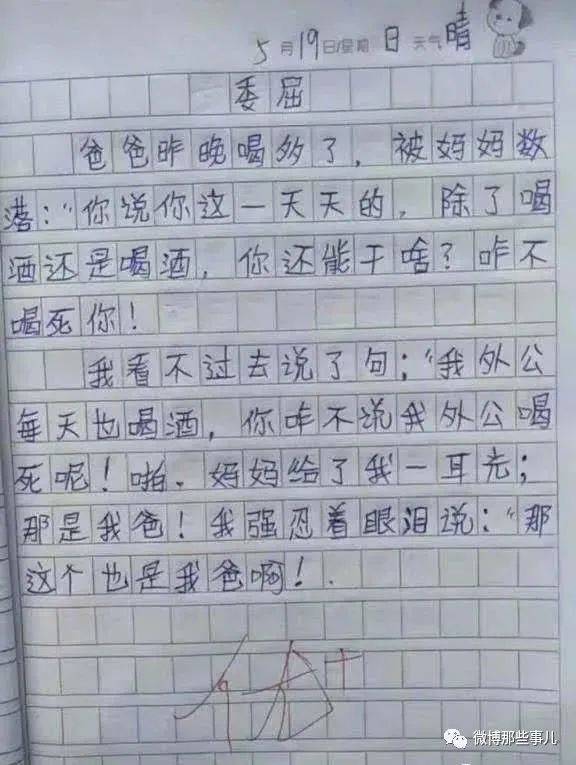 5月19日/星期 日 天气 晴
委屈
爸爸昨晚喝多了，被妈妈数
落："你说你这一天天的，除了喝
酒还是喝酒，你还能干啥？咋不
喝死你！
我看不过去说了句："我外公
每天也喝酒，你咋不说我外公喝
死呢！啪．妈妈给了我一耳光；
那是我爸！我强忍着眼泪说："那
这个也是我爸啊！．
微博那些事儿